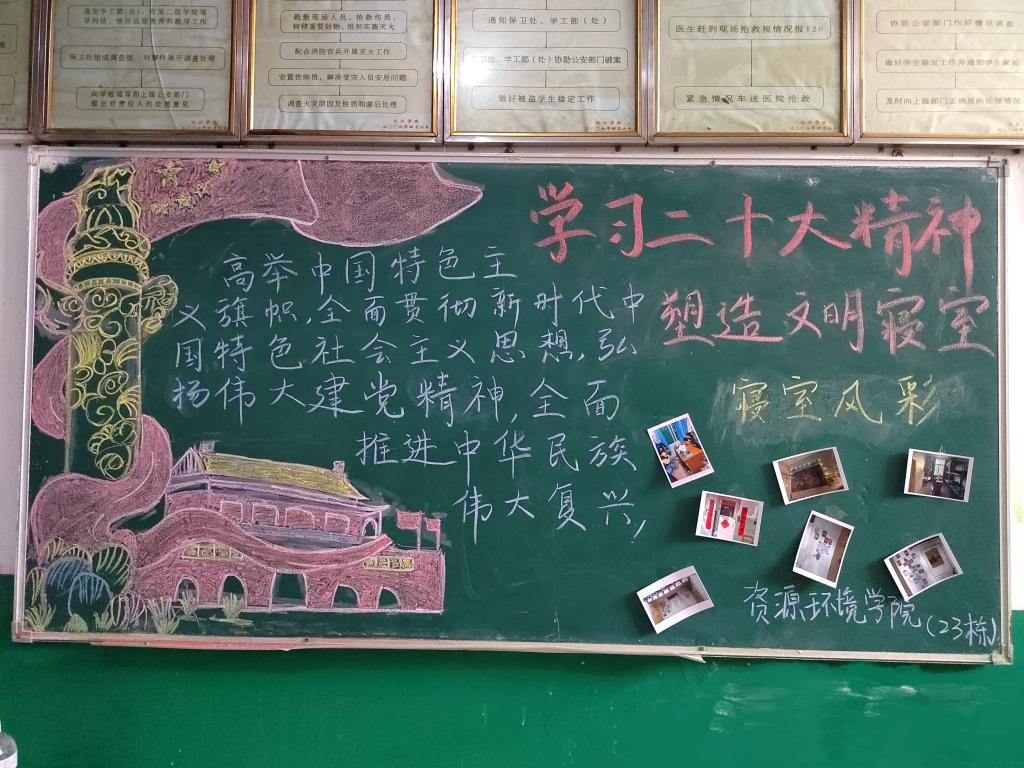 通知保卫处、学工部（处）
医生赶到现场抢救视情况报120
协助公安部门作好情况调查
疏散现场人员、抢救伤员，
转移重要财物，组织实施灭火
配合消防官兵开展灭火工作
保卫处组成调查组 对事件展开调查处理
处、学工部（处）协助公安部门破案
做好学生稳定工作并通知学生家长
安置伤病员、解决受灾人员安居问题
向学校领导和上级公安部门
提出对责任人的处理意见
调查火灾原因及性质和善后处理
做好被盗学生稳定工作
紧急情况车送医院抢救
学习二十大精神
塑造文明寝室
高举中国特色主
义旗帜,全面贯彻新时代中
国特色社会主义思想,弘
杨伟大建党精神,全面
推进中华民族
伟大复兴,
寝室风彩
资源环境学院(23栋)